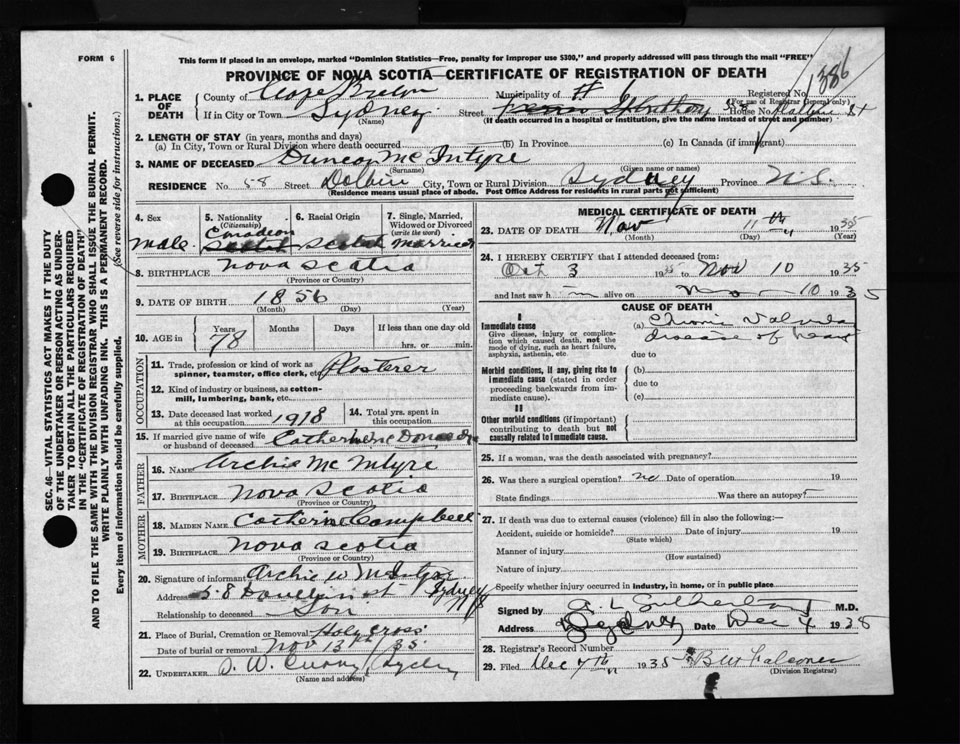 FORM 6
This form if placed in an envelope, marked "Dominion Statistics—Free, penalty for improper use $300," and properly addressed will pass through the mail "FREE"
PROVINCE OF NOVA SCOTIA—CERTIFICATE OF REGISTRATION OF DEATH
1386
1. PLACE OF DEATH
County of Cape Breton Municipality of Registered No.
(For use of Registrar General only)
If in City or Town Sydney Street House No. 58 St
(Name) (If death occurred in a hospital or institution, give the name instead of street and number)
2. LENGTH OF STAY (in years, months and days)
(a) In City, Town or Rural Division where death occurred (b) In Province (c) In Canada (if immigrant)
3. NAME OF DECEASED Duncan Mc Intyre
(Surname) (Given name or names)
RESIDENCE No. 58 Street City, Town or Rural Division Sydney Province N.S.
(Residence means usual place of abode. Post Office Address for residents in rural parts not sufficient)
4. Sex
male
5. Nationality
(Citizenship)
6. Racial Origin
Scotch
7. Single, Married, Widowed or Divorced
(write the word)
married
8. BIRTHPLACE Nova Scotia
(Province or Country)
9. DATE OF BIRTH 1856
(Month) (Day) (Year)
10. AGE in
Years Months Days If less than one day old
78 hrs. or min.
OCCUPATION
11. Trade, profession or kind of work as
spinner, teamster, office clerk, etc. Plasterer
12. Kind of industry or business, as cotton-
mill, lumbering, bank, etc.
13. Date deceased last worked
at this occupation 1918
14. Total yrs. spent in
this occupation
15. If married give name of wife
or husband of deceased Catherine
FATHER
16. NAME Archie Mc Intyre
17. BIRTHPLACE Nova Scotia
(Province or Country)
MOTHER
18. MAIDEN NAME Catherine Campbell
19. BIRTHPLACE Nova Scotia
(Province or Country)
20. Signature of informant Archie W McIntyre
Address 58 st Sydney
Relationship to deceased Son
21. Place of Burial, Cremation or Removal Holy Cross
Date of burial or removal Nov 13th /35
22. UNDERTAKER D. W. Curry Sydney
(Name and address)
MEDICAL CERTIFICATE OF DEATH
23. DATE OF DEATH Nov 11th 1935
(Month) (Day) (Year)
24. I HEREBY CERTIFY that I attended deceased from:
Oct 3 1935 to Nov 10 1935
and last saw h im alive on Nov 10 1935
CAUSE OF DEATH
I
Immediate cause
Give disease, injury or complication which caused death, not the mode of dying, such as heart failure, asphyxia, asthenia, etc.
(a) Chronic Valvular
disease of heart
due to
Morbid conditions, if any, giving rise to immediate cause (stated in order proceeding backwards from immediate cause).
(b)
due to
(c)
II
Other morbid conditions (if important) contributing to death but not causally related to immediate cause.
25. If a woman, was the death associated with pregnancy?
26. Was there a surgical operation? no Date of operation 19
State findings Was there an autopsy?
27. If death was due to external causes (violence) fill in also the following:—
Accident, suicide or homicide? Date of injury 19
(State which)
Manner of injury
(How sustained)
Nature of injury
Specify whether injury occurred in industry, in home, or in public place
Signed by Sutherland M.D.
Address Sydney Date Dec 4 1935
28. Registrar's Record Number
29. Filed Dec 7th 1935 Falconer
(Division Registrar)
SEC. 46—VITAL STATISTICS ACT MAKES IT THE DUTY
OF THE UNDERTAKER OR PERSON ACTING AS UNDER-
TAKER TO OBTAIN ALL THE PARTICULARS REQUIRED
IN THE "CERTIFICATE OF REGISTRATION OF DEATH"
AND TO FILE THE SAME WITH THE DIVISION REGISTRAR WHO SHALL ISSUE THE BURIAL PERMIT.
WRITE PLAINLY WITH UNFADING INK. THIS IS A PERMANENT RECORD.
Every item of information should be carefully supplied. (See reverse side for instructions.)